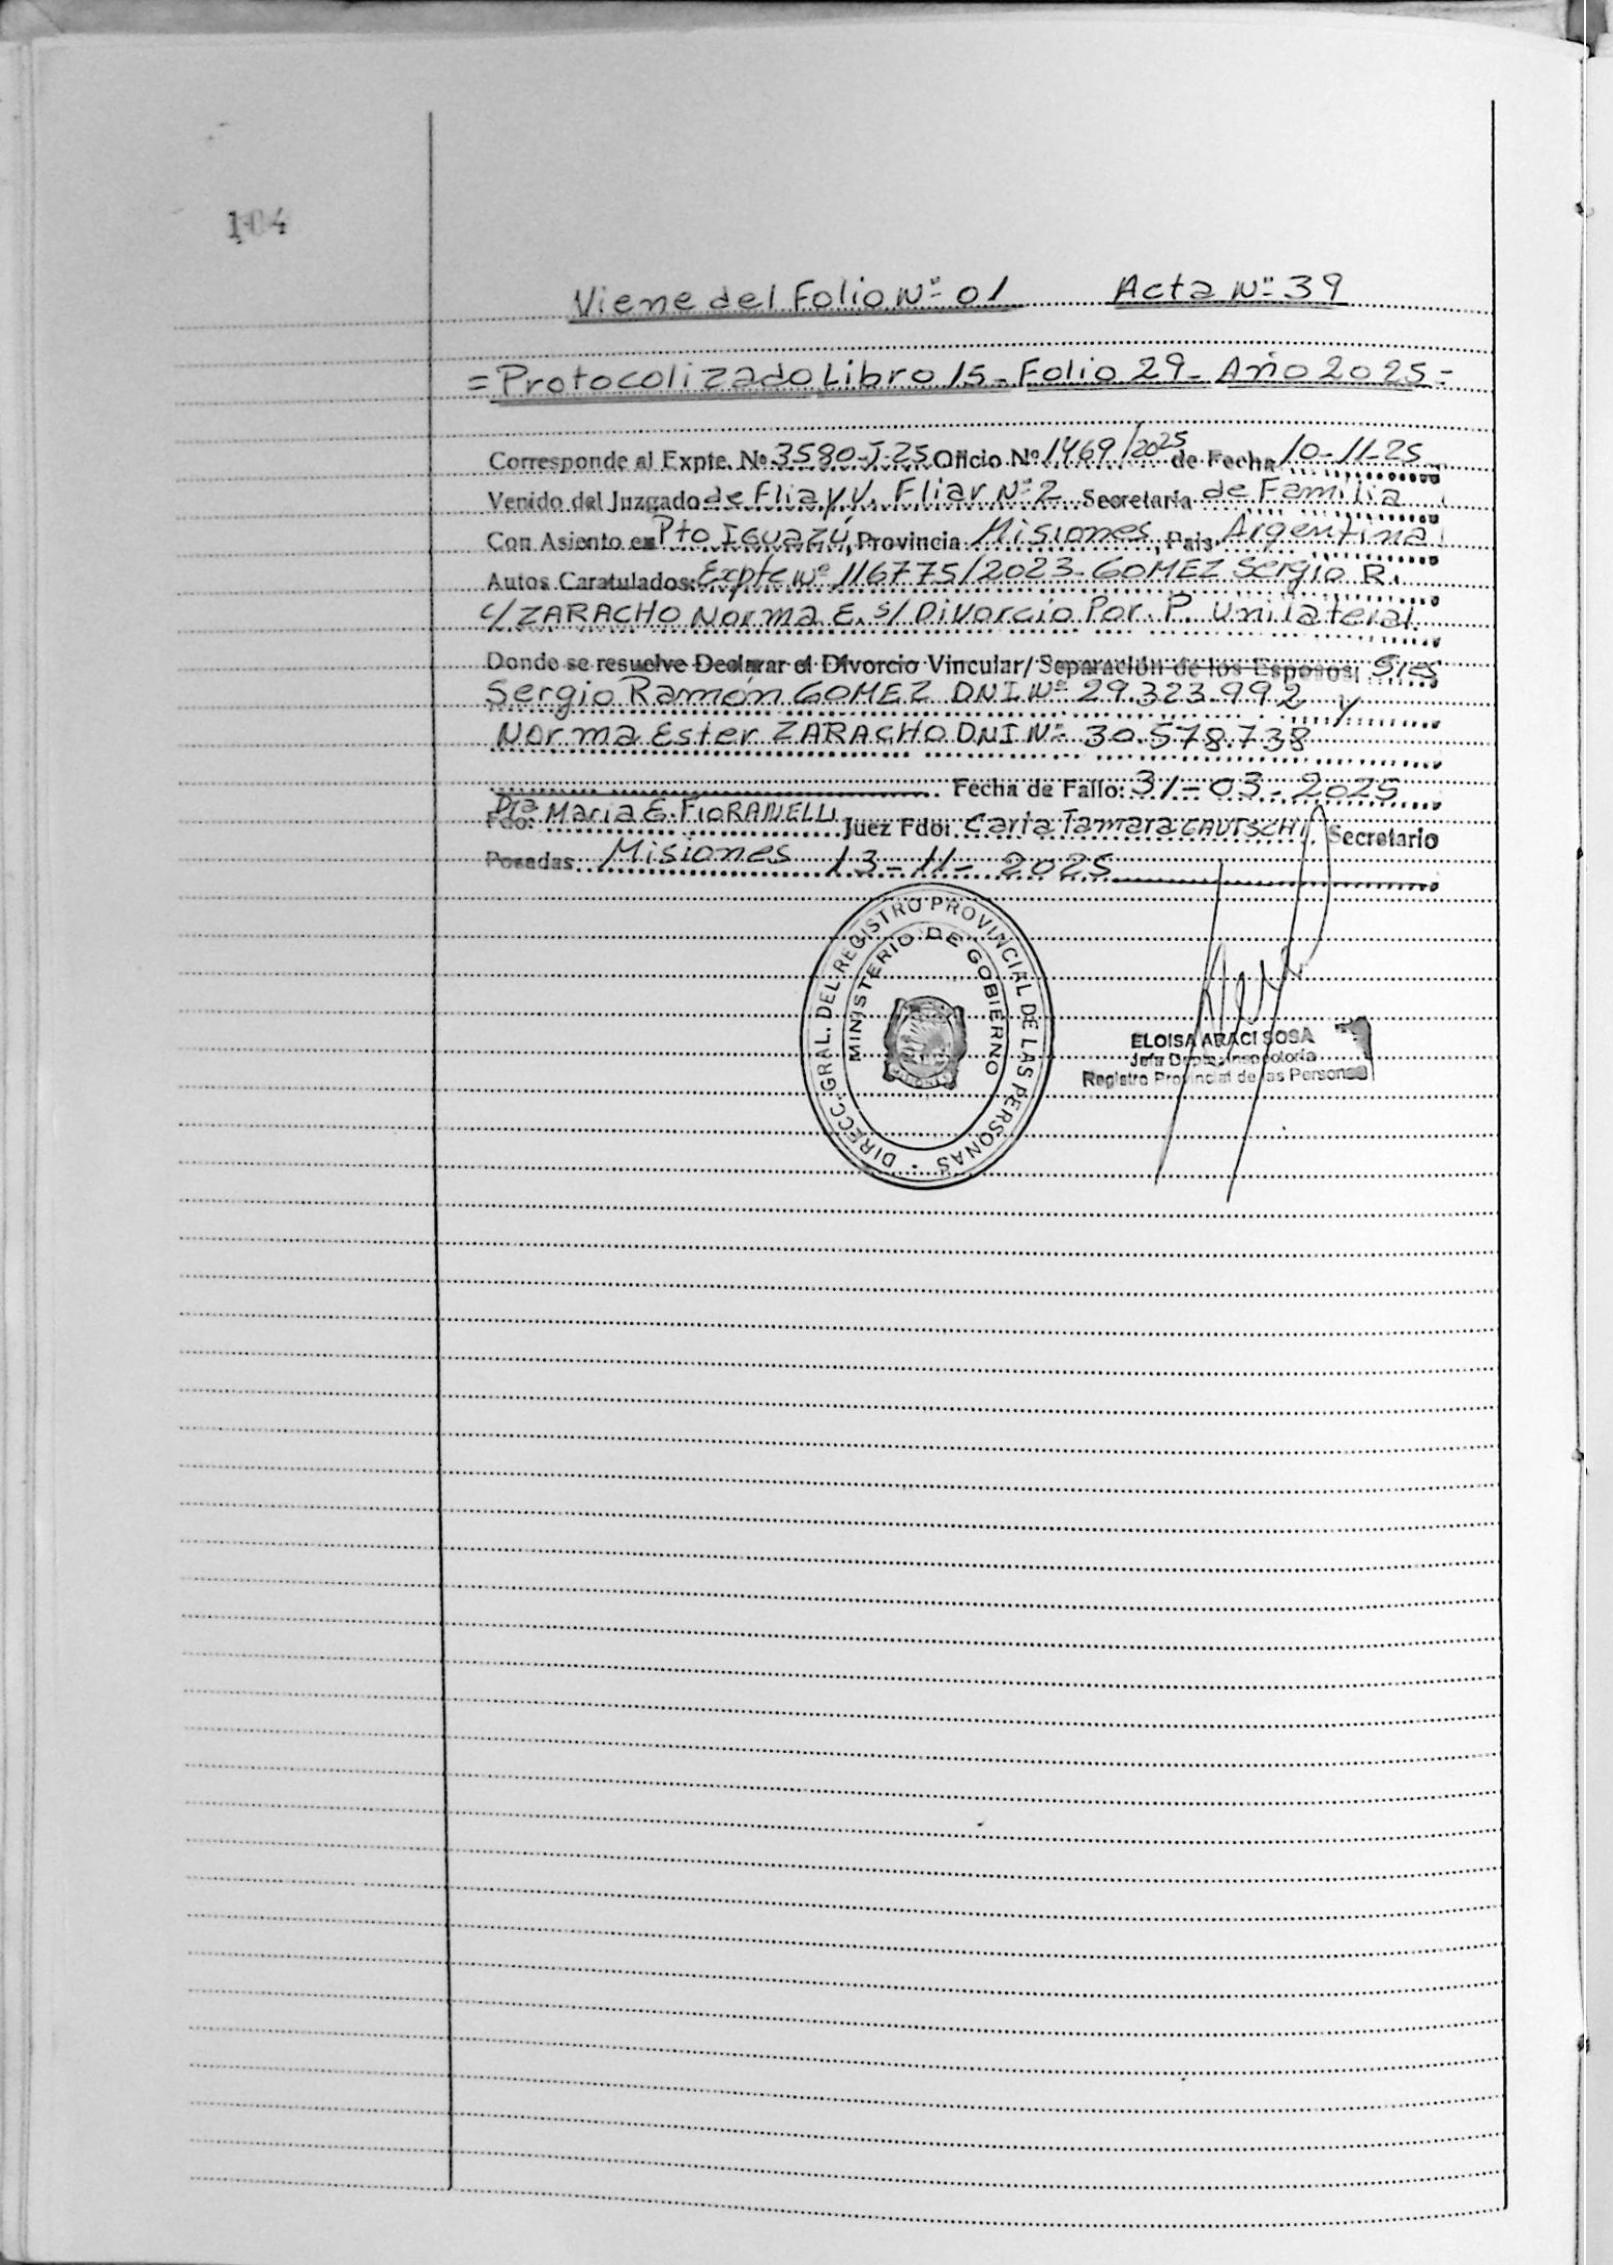 104
Viene del Folio Nº 01 Acta Nº 39
= Protocolizado Libro 15 - Folio 29 - Año 2025 -
Corresponde al Expte. Nº 3580-J-25 Oficio Nº 1469/2025 de Fecha 10-11-25
Venido del Juzgado de Flia y V. Fliar Nº 2 Secretaria de Familia
Con Asiento en Pto Iguazú, Provincia Misiones, Pais Argentina
Autos Caratulados: Expte Nº 116775/2023 - GOMEZ Sergio R.
c/ ZARACHO Norma E. s/ Divorcio Por P. Unilateral
Donde se resuelve Declarar el Divorcio Vincular/ Separación de los Esposos: Sres
Sergio Ramón GOMEZ DNI Nº 29.323.992 y
Norma Ester ZARACHO DNI Nº 30.578.738
Fecha de Fallo: 31-03-2025
Fdo: Dra Maria E. FIORANELLI Juez Fdo: Carla Tamara GAUTSCHI Secretario
Posadas Misiones 13-11-2025
DIRECC. GRAL. DEL REGISTRO PROVINCIAL DE LAS PERSONAS
MINISTERIO DE GOBIERNO
ELOISA ARACI SOSA
Jefa Dpto. Inspectoria
Registro Provincial de las Personas